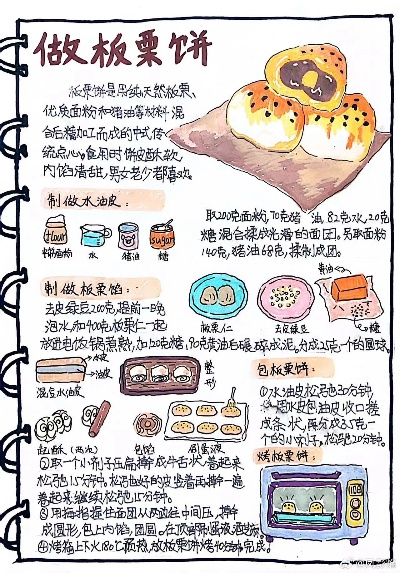 做板栗饼
板栗饼是用纯天然板栗、
优质面粉和猪油等材料混
合后精加工而成的中式传
统点心。食用时饼皮酥软,
内馅清甜,男女老少都喜欢
制做水油皮:
flour
sugar
中筋面粉
水
猪油
糖
取200克面粉,70克猪油,82克水,20克
糖混合揉成光滑的面团。另取面粉
140克,猪油68克,揉制成团。
制做板栗馅:
去皮绿豆200克,提前一晚
泡水和400克板栗仁一起
放进电饭锅煮熟,加120克糖,90克黄油后碾碎成泥。为成25克一个的圆球。
黄油
板栗仁
去皮绿豆
糖
水皮
油皮
混合水油皮
整形
起酥(两次)
包馅
刷蛋液
包板栗饼:
①水油皮松弛30分钟,
水皮包油皮收口搓
成条状,再分成35克一
个的小剂子,松弛20分钟。
②取一个小剂子压扁,擀成牛舌状,卷起来
松弛15分钟,松弛好的皮竖着再擀一遍
卷起来继续松弛15分钟。
③用拇指摁住面团从两边往中间压,擀
成圆形,包上内馅,团圆。在顶部刷蛋液
④烤箱上下火180℃预热,放板栗饼烤40分钟完成。
烤板栗饼: